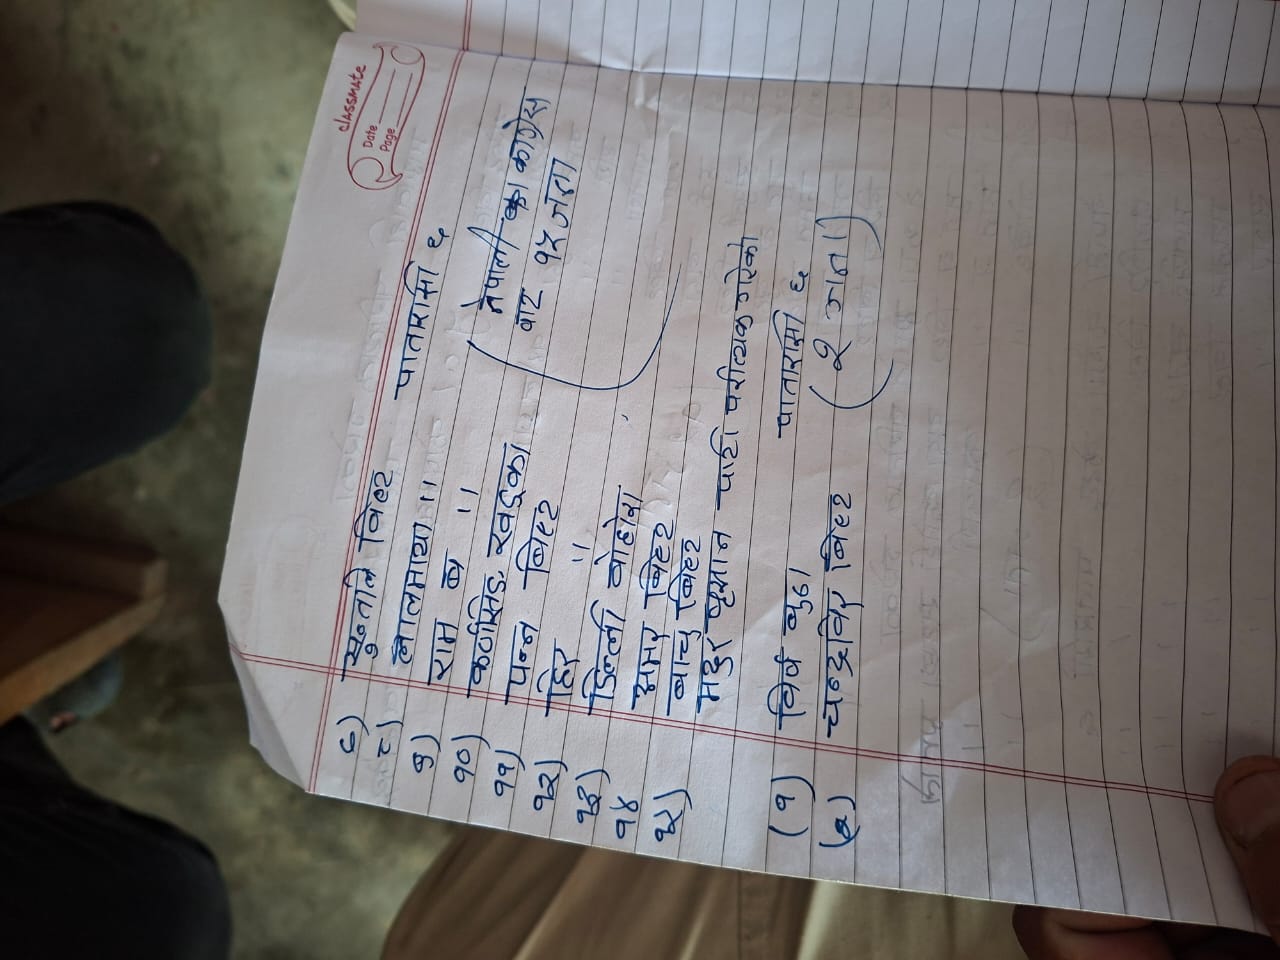 classmate
Date
Page
७) सुन्तलि विष्ट पातारासी ६
८) लालमाया ''
९) राम ब ''
१०) कर्णसिंह खड्का
११) पन्न विष्ट
१२) हिर ''
१३) डिल्ली बोहोरा
१४ अमर विष्ट
१५) बाचु विष्ट
(नेपाली का कांग्रेस
बाट १५ जना)
मधुर घुमान पार्टी परीत्याक गरेको
(१) विर्ष बुढा पातारासी ६
(२) चन्द्रविर विष्ट (२ जना)